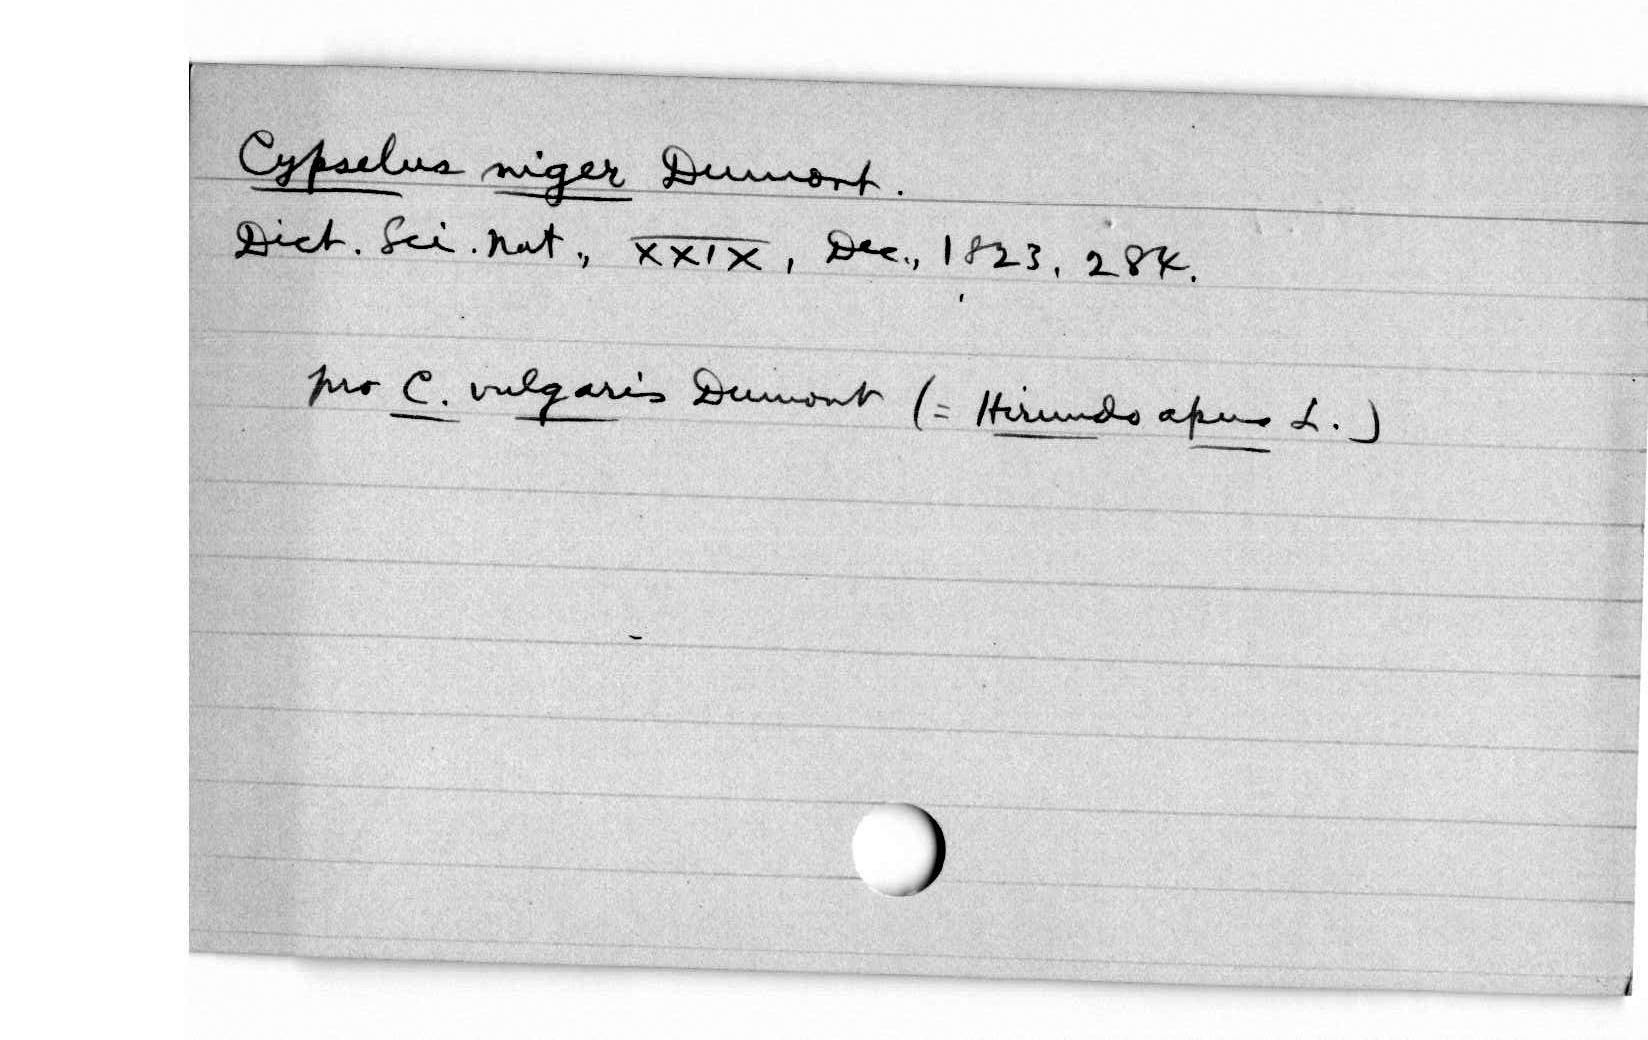 Cypselus niger Dumont.
Dict. Sci. Nat., XXIX, Dec., 1823, 284.
pro C. vulgaris Dumont (= Hirundo apus L.)